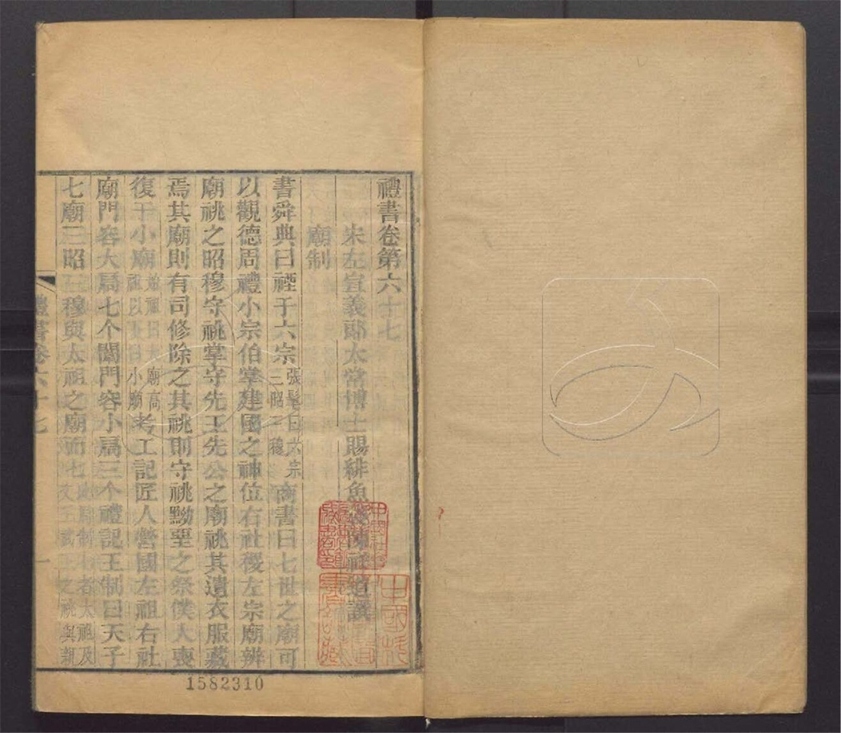 禮書卷第六十七
宋左宣義郎太常博士賜緋魚袋陳祥道譔
廟制
書舜典曰禋于六宗張髦曰六宗三昭三穆商書曰七世之廟可
以觀德周禮小宗伯掌建國之神位右社稷左宗廟辨
廟祧之昭穆守祧掌守先王先公之廟祧其遺衣服藏
焉其廟則有司修除之其祧則守祧黝堊之祭僕大喪
復于小廟始祖曰大廟高祖以下曰小廟考工記匠人營國左祖右社
廟門容大扃七个闈門容小扃三个禮記王制曰天子
七廟三昭三穆與太祖之廟而七此周制七者太祖及文王武王之祧與親
禮書卷六十七
一
1582310